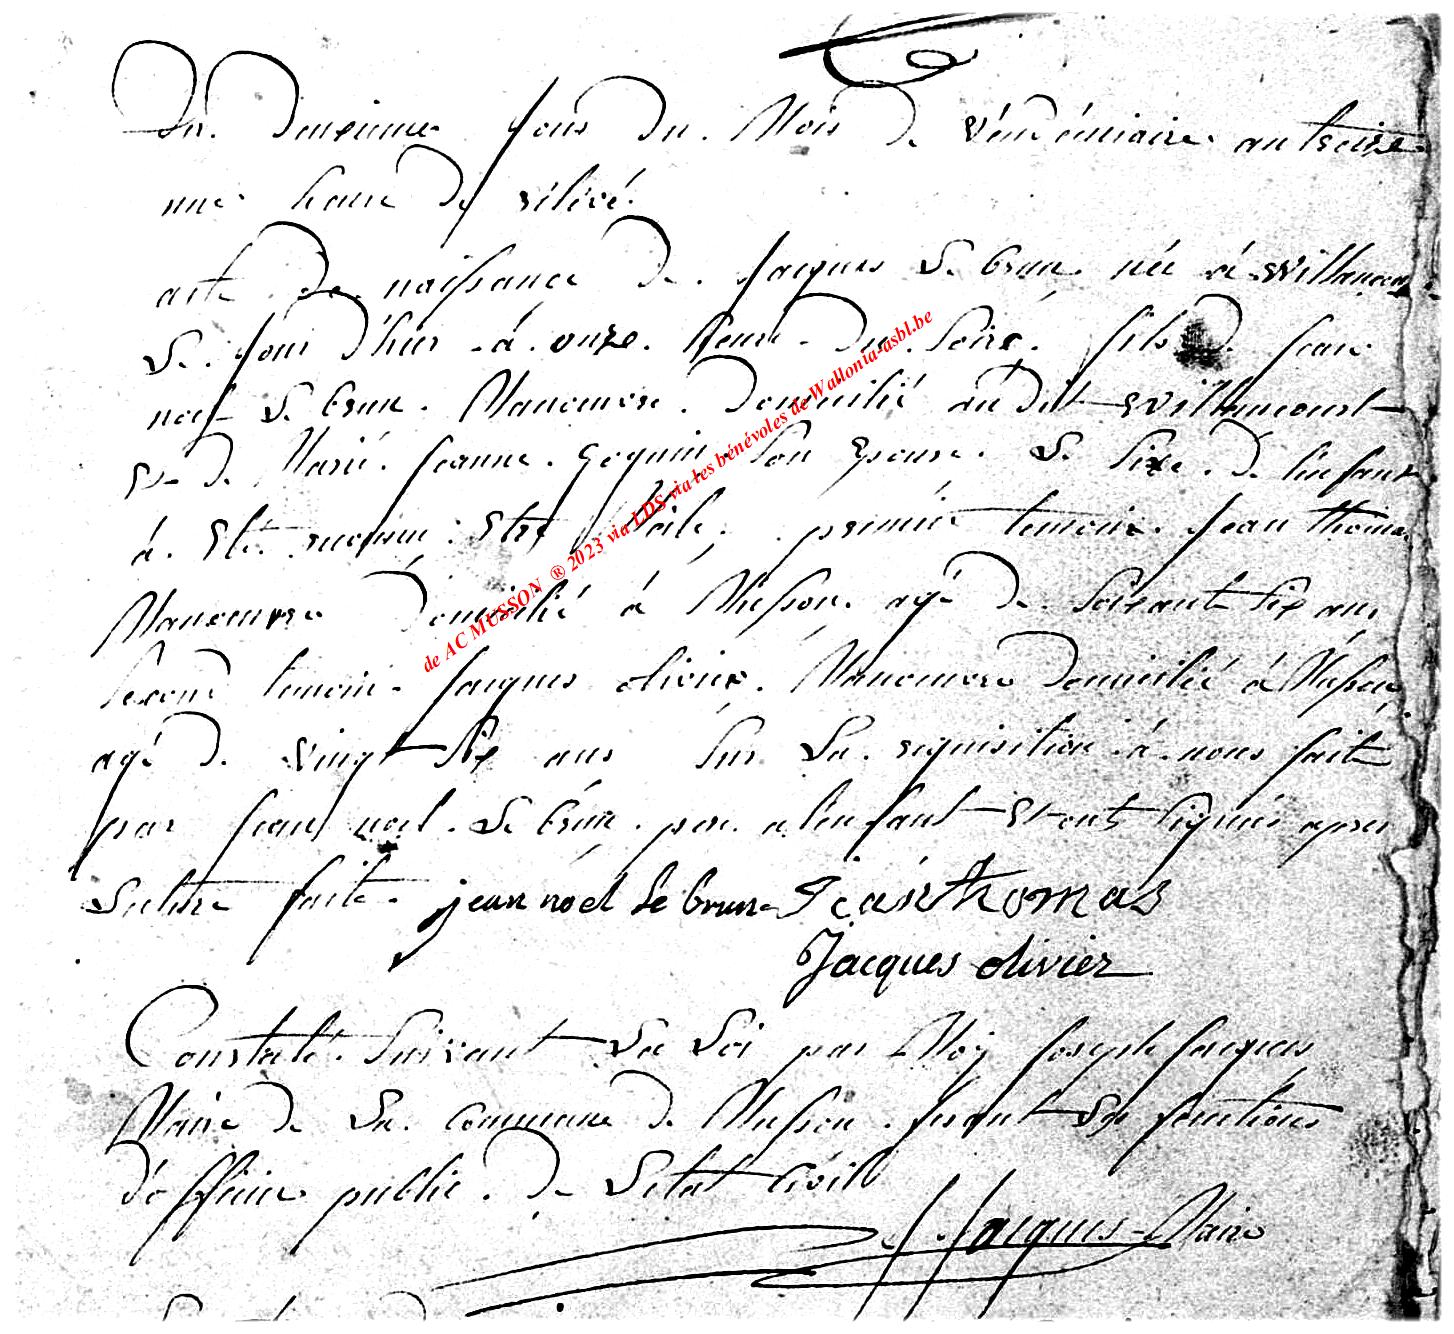 Du. deuxieme jour du. Mois de vendémiaire an treize
une heure de rélevé.
acte de naissance de. Jacques Le brun né à Willancou
Le. jour d'hier à. onze. heure du. soire. fils de jean
noel Le brun. Manoeuvre. Domicilié au dit Willancourt
et de Marié. jeanne. Goquin. son Epouse. Le sexe. de l'enfant
à. Eté. reconnu. Etre mâle. premier temoin. jean thomas
Manoeuvre domicilié à Musson. agé de. soixante six ans
second temoin. jacques olivier. Manoeuvre domicilié à Musson
agé de vingt six ans sur La. requisition à nous fait
par jean noel. Le brun. pere. a l'enfant Et ont signés apres
Lecture faite. jean noel le brun Jean thomas
Jacques olivier
Constaté. Suivant La Loi par Moy joseph jacques
Maire de La. commune de Musson. faisant Les fonctions
d'officier public. de Letat Civil
J Jacques Maire
de AC MUSSON ® 2023 via LDS via les bénévoles de Wallonia-asbl.be